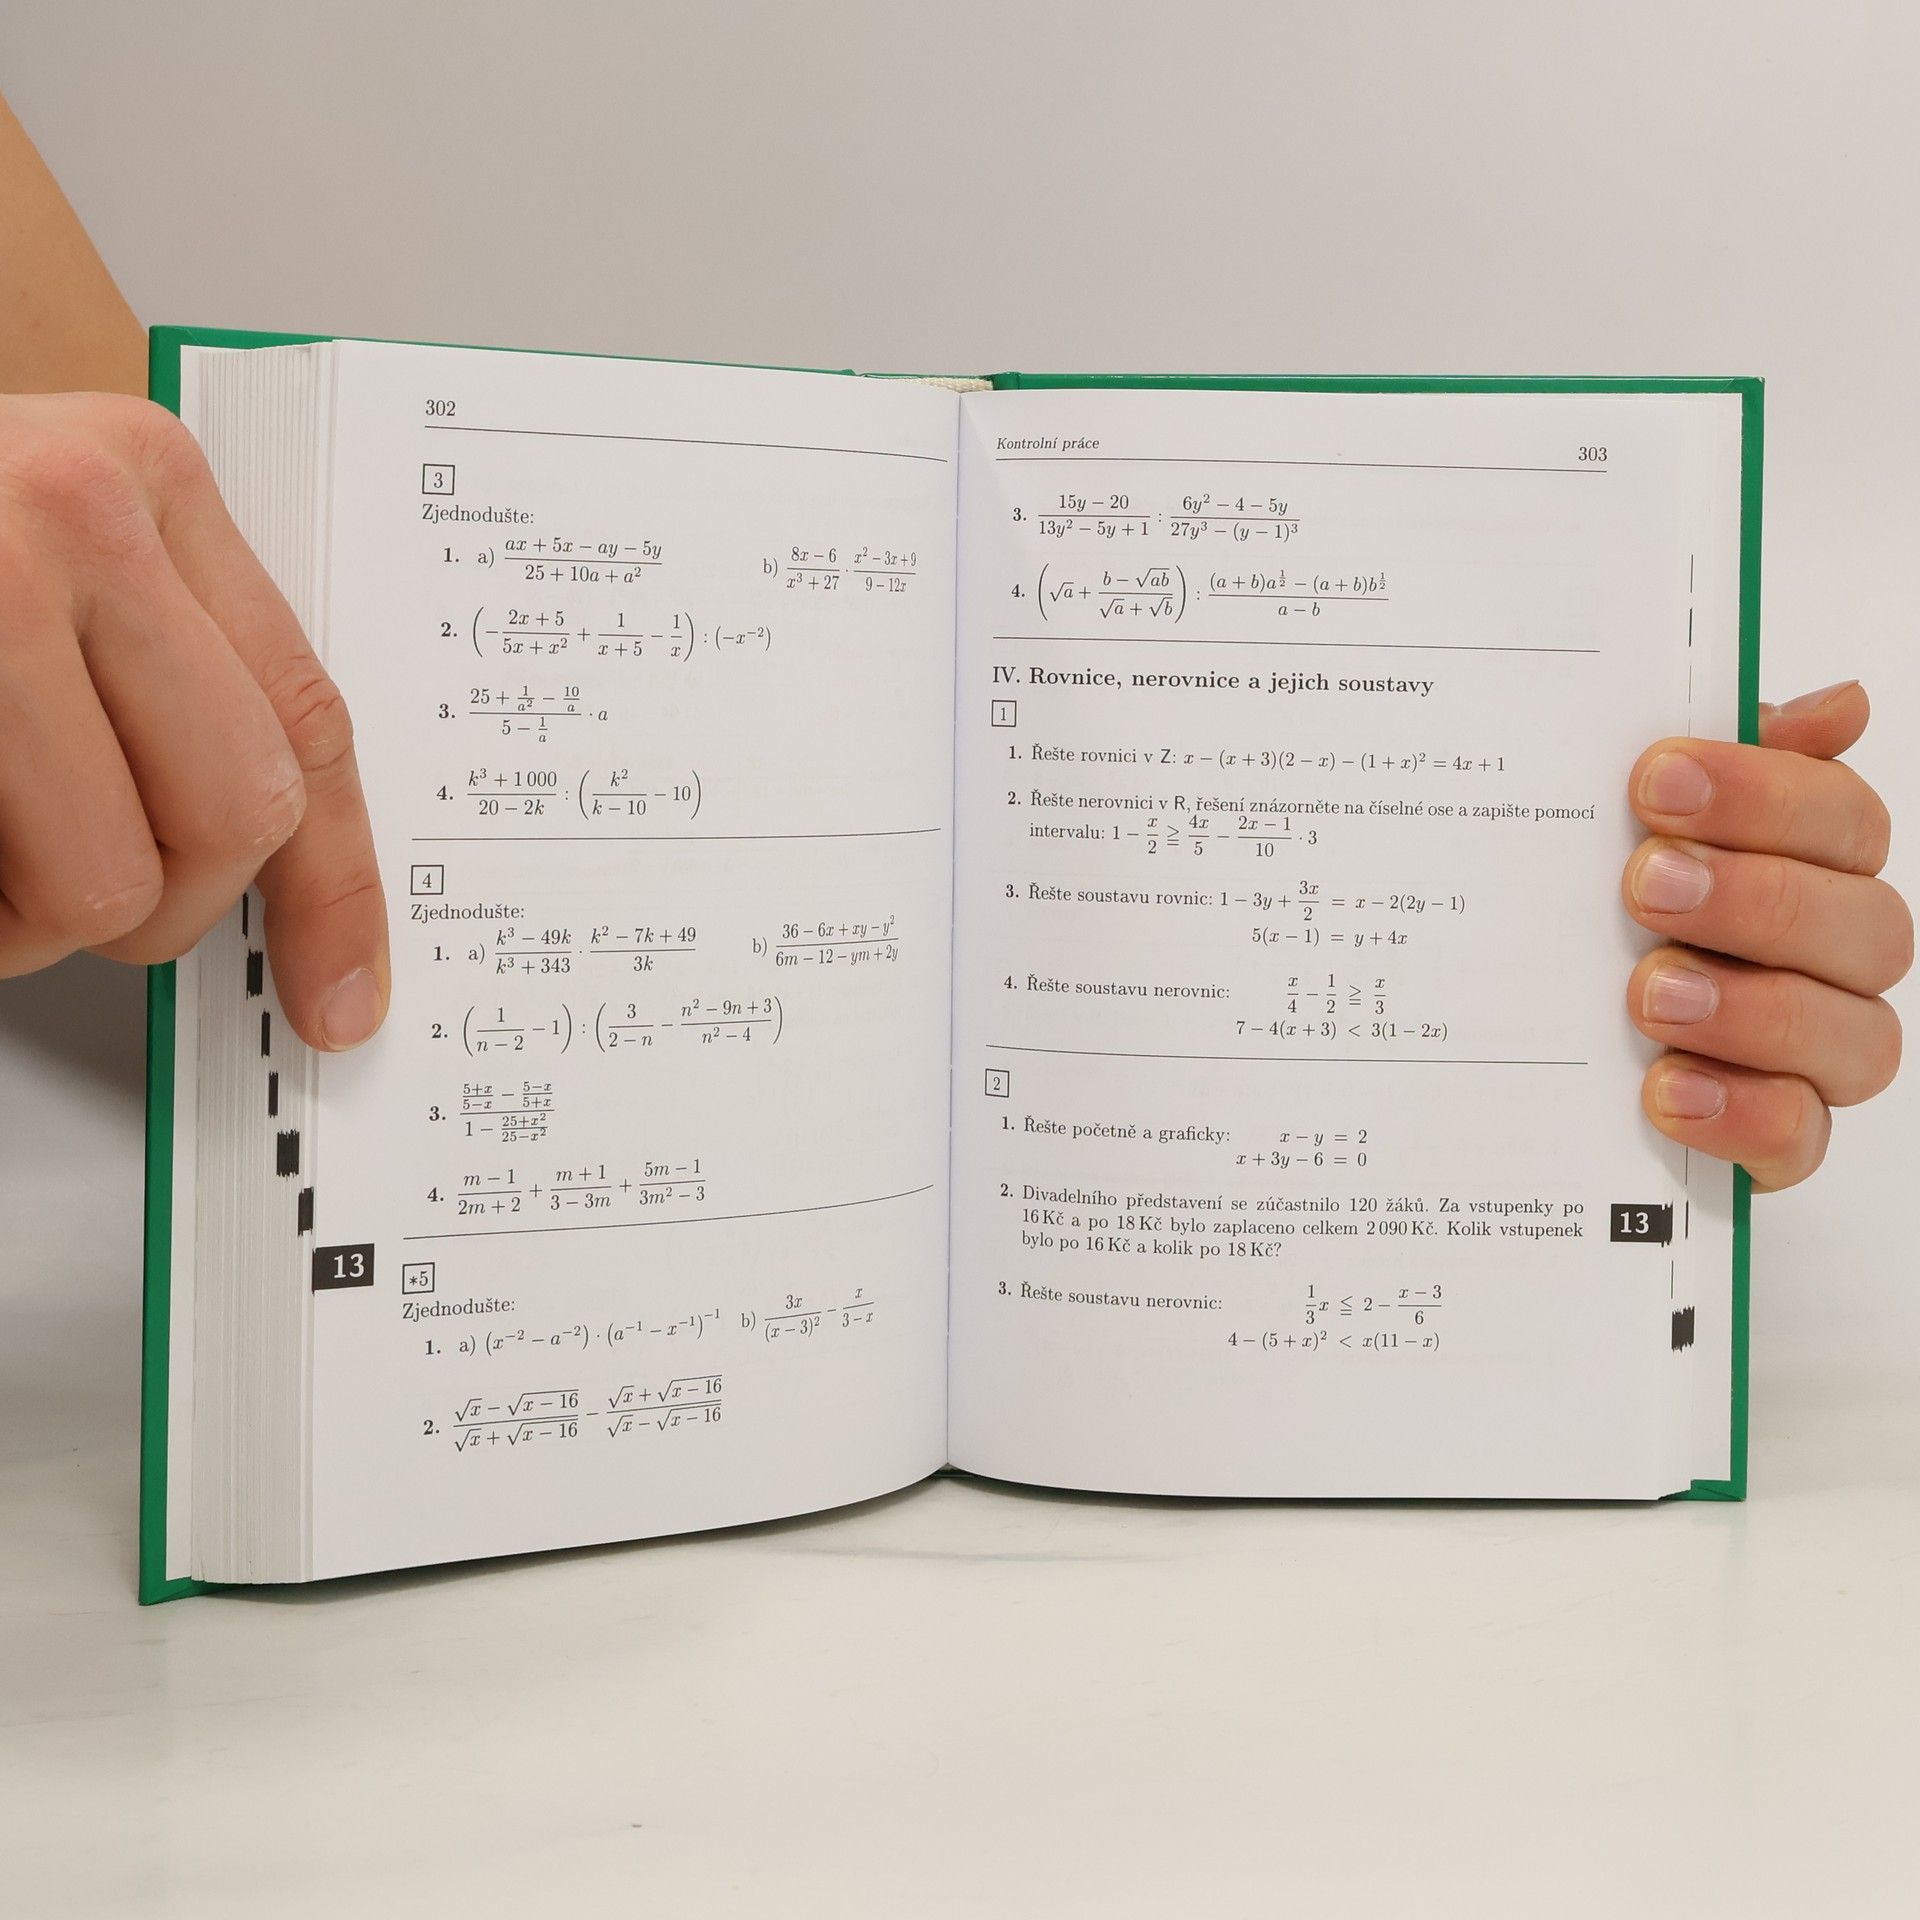 302
3
Zjednodušte:
1. a) \frac{ax + 5x − ay − 5y}{25 + 10a + a^2} b) \frac{8x − 6}{x^3 + 27} · \frac{x^2 − 3x + 9}{9 − 12x}
2. (−\frac{2x + 5}{5x + x^2} + \frac{1}{x + 5} − \frac{1}{x}) : (−x^{−2})
3. \frac{25 + \frac{1}{a^2} − \frac{10}{a}}{5 − \frac{1}{a}} · a
4. \frac{k^3 + 1 000}{20 − 2k} : (\frac{k^2}{k − 10} − 10)
4
Zjednodušte:
1. a) \frac{k^3 − 49k}{k^3 + 343} · \frac{k^2 − 7k + 49}{3k} b) \frac{36 − 6x + xy − y^2}{6m − 12 − ym + 2y}
2. (\frac{1}{n − 2} − 1) : (\frac{3}{2 − n} − \frac{n^2 − 9n + 3}{n^2 − 4})
3. \frac{\frac{5+x}{5−x} − \frac{5−x}{5+x}}{1 − \frac{25+x^2}{25−x^2}}
4. \frac{m − 1}{2m + 2} + \frac{m + 1}{3 − 3m} + \frac{5m − 1}{3m^2 − 3}
13
*5
Zjednodušte:
1. a) (x^{−2} − a^{−2}) · (a^{−1} − x^{−1})^{−1} b) \frac{3x}{(x − 3)^2} − \frac{x}{3 − x}
2. \frac{√x − √{x − 16}}{√x + √{x − 16}} − \frac{√x + √{x − 16}}{√x − √{x − 16}}
Kontrolní práce 303
3. \frac{15y − 20}{13y^2 − 5y + 1} : \frac{6y^2 − 4 − 5y}{27y^3 − (y − 1)^3}
4. (√a + \frac{b − √{ab}}{√a + √b}) : \frac{(a + b)a^{\frac{1}{2}} − (a + b)b^{\frac{1}{2}}}{a − b}
IV. Rovnice, nerovnice a jejich soustavy
1
1. Řešte rovnici v Z: x − (x + 3)(2 − x) − (1 + x)^2 = 4x + 1
2. Řešte nerovnici v R, řešení znázorněte na číselné ose a zapište pomocí
intervalu: 1 − \frac{x}{2} ≧ \frac{4x}{5} − \frac{2x − 1}{10} · 3
3. Řešte soustavu rovnic: 1 − 3y + \frac{3x}{2} = x − 2(2y − 1)
5(x − 1) = y + 4x
4. Řešte soustavu nerovnic: \frac{x}{4} − \frac{1}{2} ≧ \frac{x}{3}
7 − 4(x + 3) < 3(1 − 2x)
2
1. Řešte početně a graficky: x − y = 2
x + 3y − 6 = 0
2. Divadelního představení se zúčastnilo 120 žáků. Za vstupenky po
16 Kč a po 18 Kč bylo zaplaceno celkem 2 090 Kč. Kolik vstupenek
bylo po 16 Kč a kolik po 18 Kč?
13
3. Řešte soustavu nerovnic: \frac{1}{3}x ≦ 2 − \frac{x − 3}{6}
4 − (5 + x)^2 < x(11 − x)